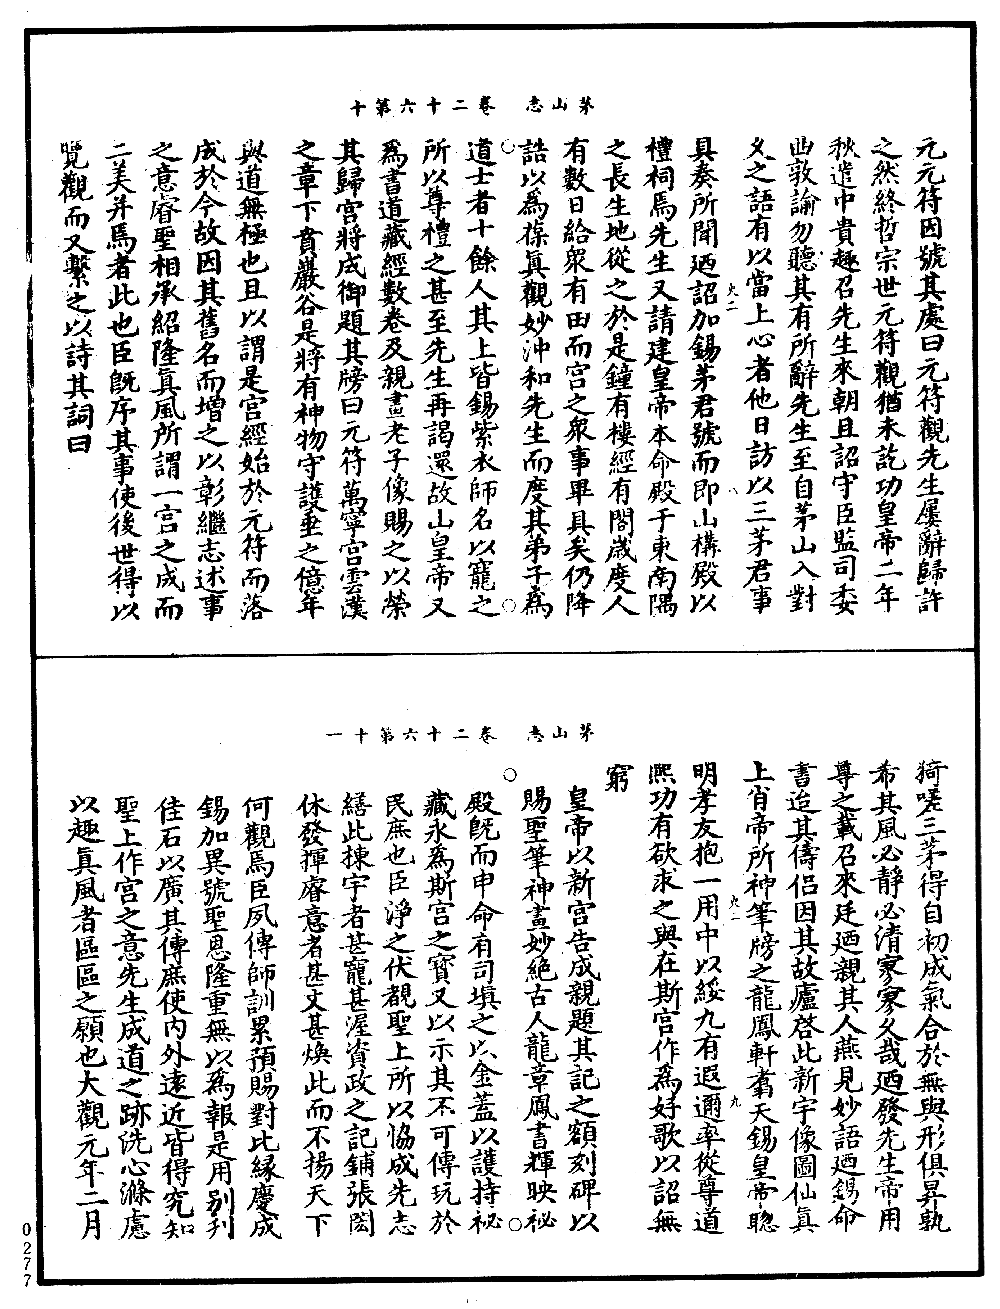 茅山志　卷二十六第十
元元符因號其處曰元符觀先生屢辭歸許
之然終哲宗世元符觀猶未訖功皇帝二年
秋遣中貴趣召先生來朝且詔守臣監司委
曲敦諭勿聽其有所辭先生至自茅山入對
久之語有以當上心者他日訪以三茅君事
具奏所聞廼詔加錫茅君號而即山構殿以
禮祠焉先生又請建皇帝本命殿于東南隅
之長生地從之於是鐘有樓經有閣歲度人
有數日給衆有田而宮之衆事畢具矣仍降
誥以為葆真觀妙沖和先生而度其弟子為
道士者十餘人其上皆錫紫衣師名以寵之
所以尊禮之甚至先生再謁還故山皇帝又
為書道藏經數卷及親畫老子像賜之以榮
其歸宮將成御題其牓曰元符萬寧宮雲漢
之章下賁巖谷是將有神物守護垂之億年
與道無極也且以謂是宮經始於元符而落
成於今故因其舊名而增之以彰繼志述事
之意睿聖相承紹隆真風所謂一宮之成而
二美并焉者此也臣既序其事使後世得以
覽觀而又繫之以詩其詞曰
茅山志　卷二十六第十一
猗嗟三茅得自初成氣合於無與形俱昇孰
希其風必靜必清寥寥久哉廼發先生帝用
尊之載召來廷廼親其人燕見妙語廼錫命
書迨其儔侶因其故廬啓此新宇像圖仙真
上肖帝所神筆牓之龍鳳軒翥天錫皇帝聰
明孝友抱一用中以綏九有遐邇率從尊道
熙功有欲求之與在斯宮作為好歌以詔無
窮
皇帝以新宮告成親題其記之額刻碑以
賜聖筆神畫妙絕古人龍章鳳書輝映祕
殿既而申命有司填之以金蓋以護持祕
藏永為斯宮之寶又以示其不可傳玩於
民庶也臣淨之伏覩聖上所以恊成先志
繕此棟宇者甚寵甚渥資政之記鋪張閎
休發揮睿意者甚文甚煥此而不揚天下
何觀焉臣夙傳師訓累預賜對比緣慶成
錫加異號聖恩隆重無以為報是用别刊
佳石以廣其傳庶使内外遠近皆得究知
聖上作宮之意先生成道之跡洗心滌慮
以趣真風者區區之願也大觀元年二月
0277